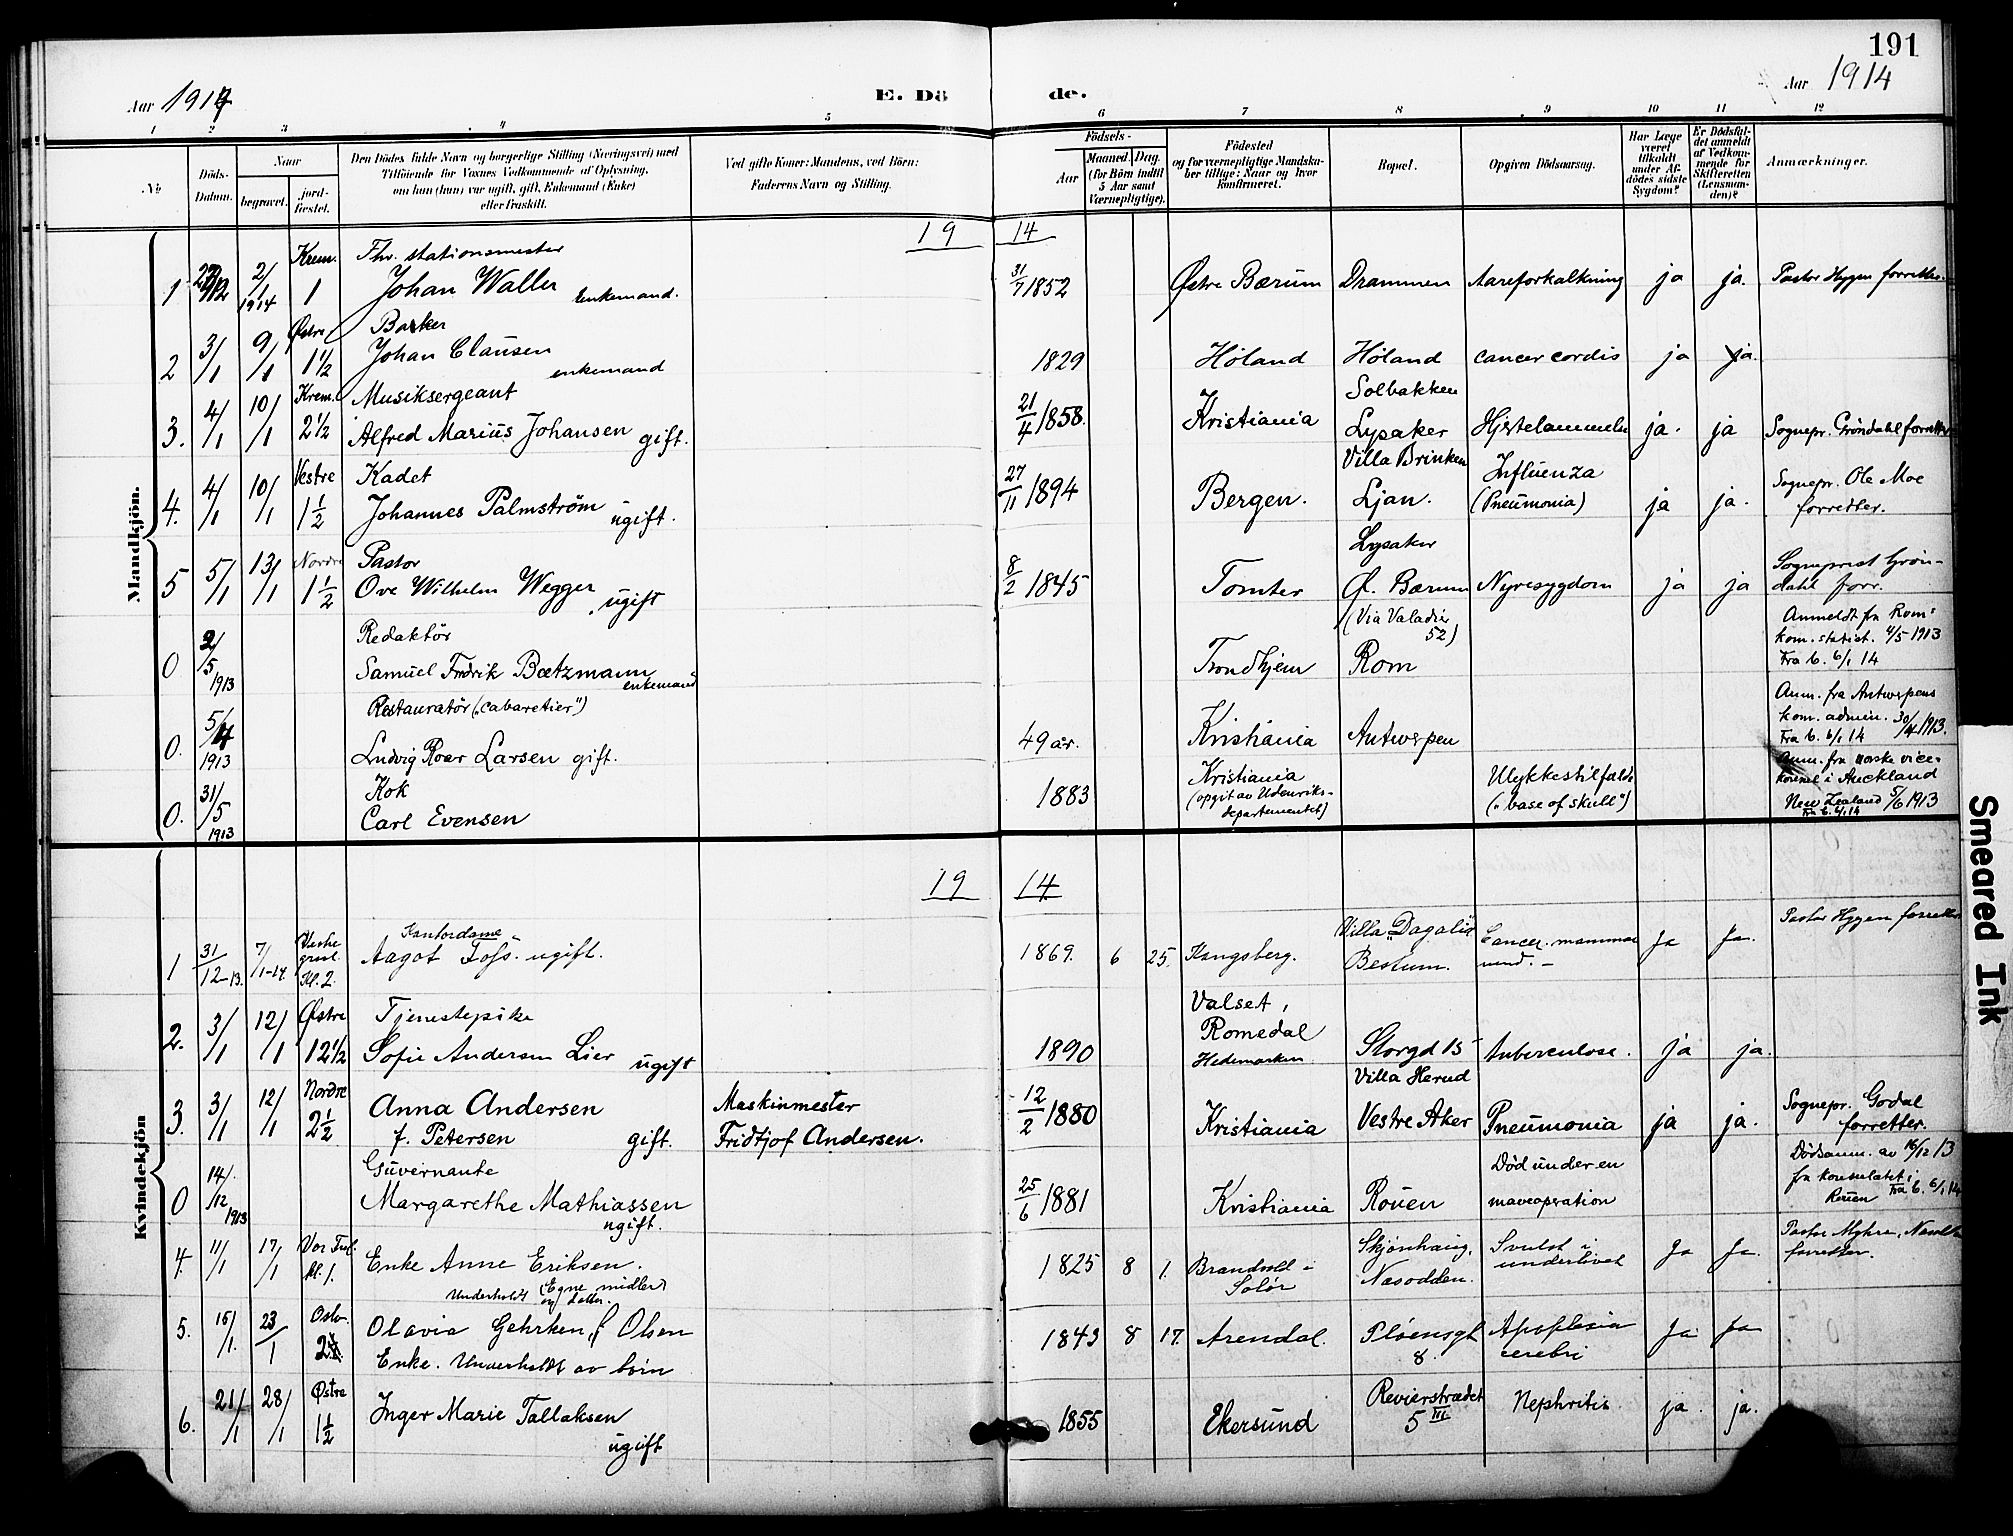 191
Aar 1914
E. Dö
de.
Aar 1914
1 2 3 4 5 6 7 8 9 10 11 12
No
Döds-
Datum.
Naar
begravet.
jord-
fæstet.
Den Dödes fulde Navn og borgerlige Stilling (Næringsvei) med
Tilföiende for Voxnes Vedkommende af Oplysning,
om han (hun) var ugift, gift, Enkemand (Enke)
eller fraskilt.
Ved gifte Koner: Mandens, ved Börn:
Faderens Navn og Stilling.
Födsels-
Aar
Maaned. Dag.
(for Börn indtil
5 Aar samt
Værnepligtige).
Födested
og for værnepligtige Mandska-
ber tillige: Naar og hvor
konfirmeret.
Bopæl.
Opgiven Dödsaarsag.
Har Læge
været
tilkaldt
under Af-
dödes sidste
Sygdom?
Er Dödsfal-
det anmeldt
af Vedkom-
mende for
Skifteretten
(Lensman-
den)?
Anmærkninger.
Mandkjön.
19 14
1 2/1 1914 Krem. 1 Fhv. stationsmester
Johan Waller enkemand. 31/7 1852 Østre Bærum Drammen Aareforkalkning ja ja. Pastor Hygen forretter.
2 3/1 9/1 Østre 1 1/2
Johan Clausen enkemand 1829 Høland Høland cancer cordis ja ja.
3. 4/1 10/1 Krem. 2 1/2 Musiksergeant
Alfred Marius Johansen gift. 21/4 1858. Kristiania Solbakken
Lysaker Hjertelammelse ja. ja Sognepr. Grøndahl forretter
4. 4/1 10/1 Vestre 1 1/2 Kadet
Johannes Palmstrøm ugift. 27/11 1894 Bergen. Villa Brinken
Ljan. Influenza
(Pneumonia) ja ja. Sognepr. Ole Moe
forretter.
5 5/1 13/1 Nordre 1 1/2 Pastor
Ove Wilhelm Wegger ugift 8/2 1845 Tomter Lysaker
Ø. Bærum Nyresygdom ja ja Sogneprest Grøn-
dahl forr.
0 2/5 1913 Redaktör
Samuel Fredrik Bætzmann enkemand Trondhjem (Via Valadier
52)
Rom Anmeldt fra Rom:
kom. statist. 4/5 1913
Fra 6. 6/1 14
0. 5/4 1913 Restauratör („cabaretier")
Ludvig Roar Larsen gift. 49 år. Kristiania Antwerpen Anm. fra Antwerpens
kom. admin. 30/4 1913.
Fra 6. 6/1 14
0. 31/5 1913 Kok
Carl Evensen 1883 Kristiania
(opgit av Udenriks-
departementet) Ulykkestilfælde
(„base of skull") Anm. fra norske vice-
konsul i Auckland
New Zealand 5/6 1913
Fra 6. 6/1 14
Kvindekjön
19 14
1 31/12-13. 7/1-14. Vestre
gravl.
Kl. 2. Kontordame
Aagot Foss. ugift. 1869. 6 25. Kongsberg. Villa „Dagali"
Bestum. Cancer mammae ja ja. Pastor Hygen forretter
2. 3/1 12/1 Østre 12 1/2 Tjenestepike
Sofie Andersen Lier ugift 1890 Valset,
Romedal
Hedemarken Storgd 15 Tuberculose. ja ja.
3. 3/1 12/1 Nordre 2 1/2 Anna Andersen
f. Petersen gift. Maskinmester
Fridtjof Andersen. 12/2 1880 Kristiania Villa Herud
Vestre Aker Pneumonia ja ja. Sognepr. Godal
forretter.
0 14/12 1913 Guvernante
Margarethe Mathiassen ugift. 25/6 1881 Kristiania Rouen Död under en
maveoperation Dödsanm. av 16/12 13
fra konsulatet i
Rouen Fra 6. 6/1 14
4. 11/1 17/1 Vor Frel.
kl. 1. Enke Anne Eriksen.
Underholdt (Egne midler
og datter. 1825 8 1. Brandvold i
Solør Skjønhaug,
Nesodden. Svulst i
underlivet Ja Ja. Pastor Myhre, Nesodden
forretter.
5. 15/1. 23/1 Oslo. 2 Olavia Gehrken, f. Olsen
Enke. Underholdt av børn 1843 8 17. Arendal. Pløensgt
8. Apoplexia
cerebri Ja Ja
6. 21/1 28/1 Østre 1 1/2 Inger Marie Tallaksen
ugift 1855 Ekersund Revierstrædet
5 III Nephritis ja. ja.
Smeared Ink